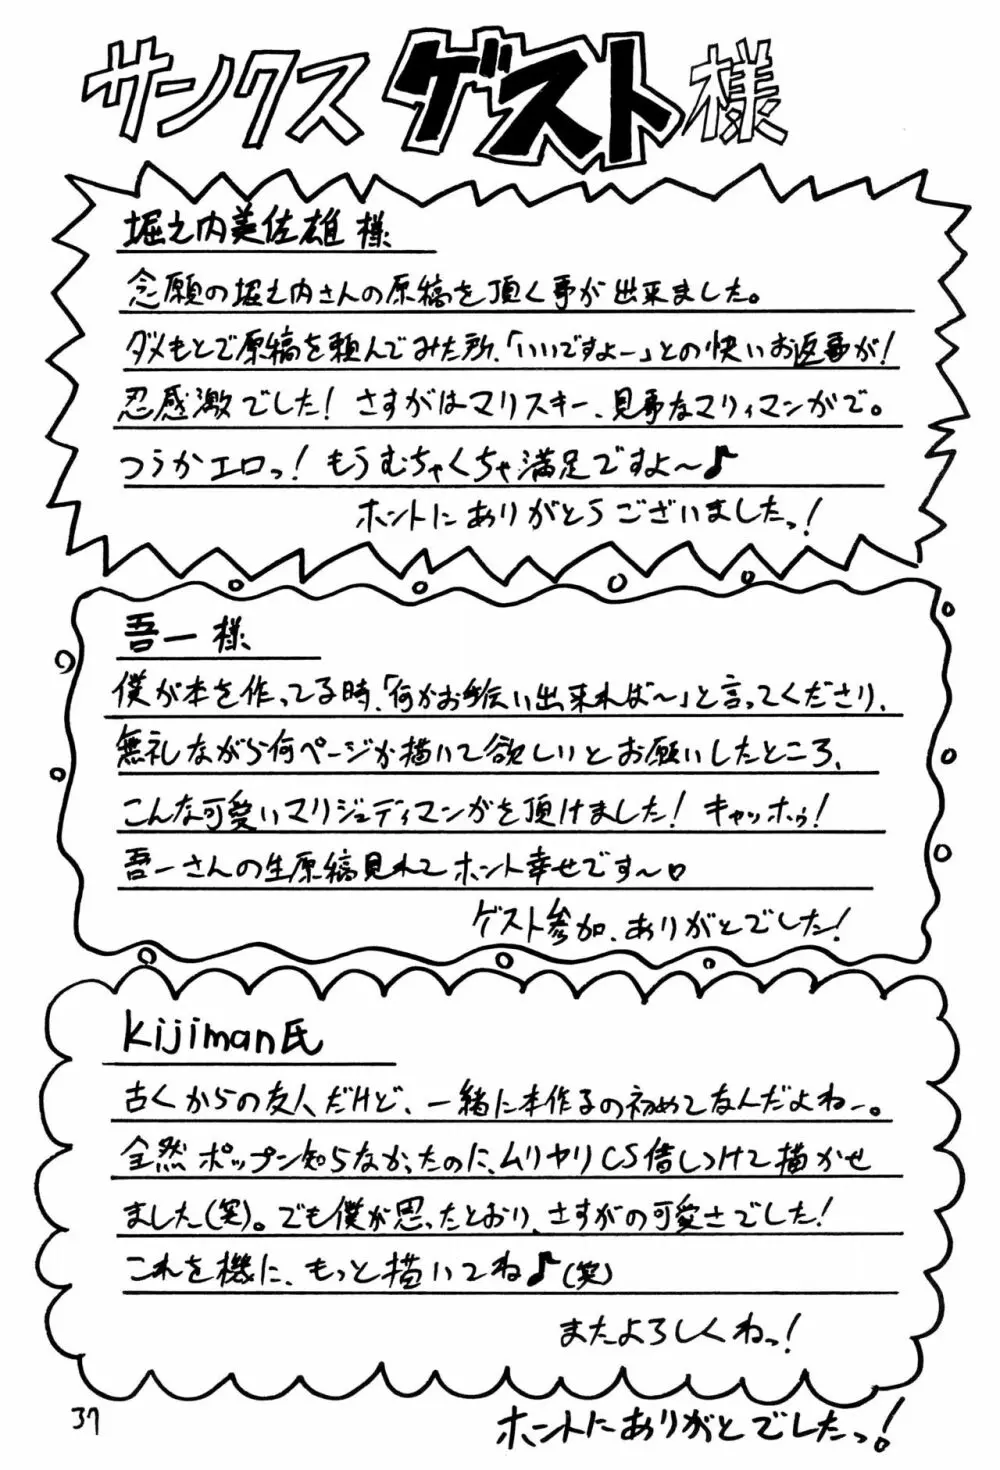 サンクスゲスト様
堀之内美佐雄様
念願の堀之内さんの原稿を頂く事が出来ました。
ダメもとで原稿を頼んでみた所、「いいですよー」との快いお返事が!
忍感激でした! さすがはマリスキー、見事なマリィマンガで。
つうかエロっ! もうむちゃくちゃ満足ですよ〜♪
ホントにありがとうございましたっ!
吾一様
僕が本を作ってる時、「何かお手伝い出来れば〜」と言ってくださり、
無礼ながら何ページか描いて欲しいとお願いしたところ、
こんな可愛いマリジュディマンガを頂けました! キャッホゥ!
吾一さんの生原稿見れてホント幸せです〜♡
ゲスト参加、ありがとでした!
kijiman氏
古くからの友人だけど、一緒に本作るの初めてなんだよねー。
全然ポップン知らなかったのに、ムリヤリCS借しつけて描かせ
ました(笑)。でも僕が思ったとおり、さすがの可愛さでした!
これを機に、もっと描いてね♪(笑)
またよろしくねっ!
37
ホントにありがとでしたっ!